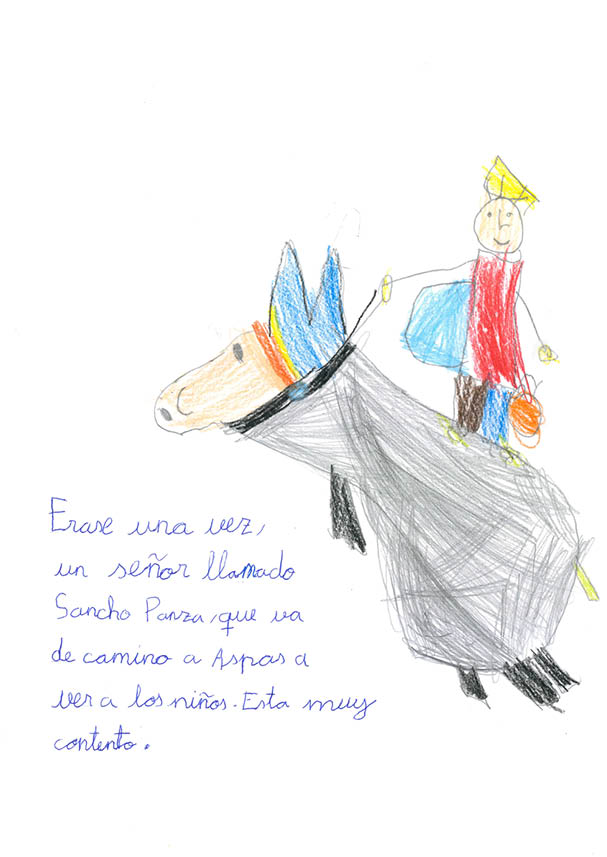 Erase una vez,
un señor llamado
Sancho Panza, que va
de camino a Aspas a
ver a los niños. Esta muy
contento.